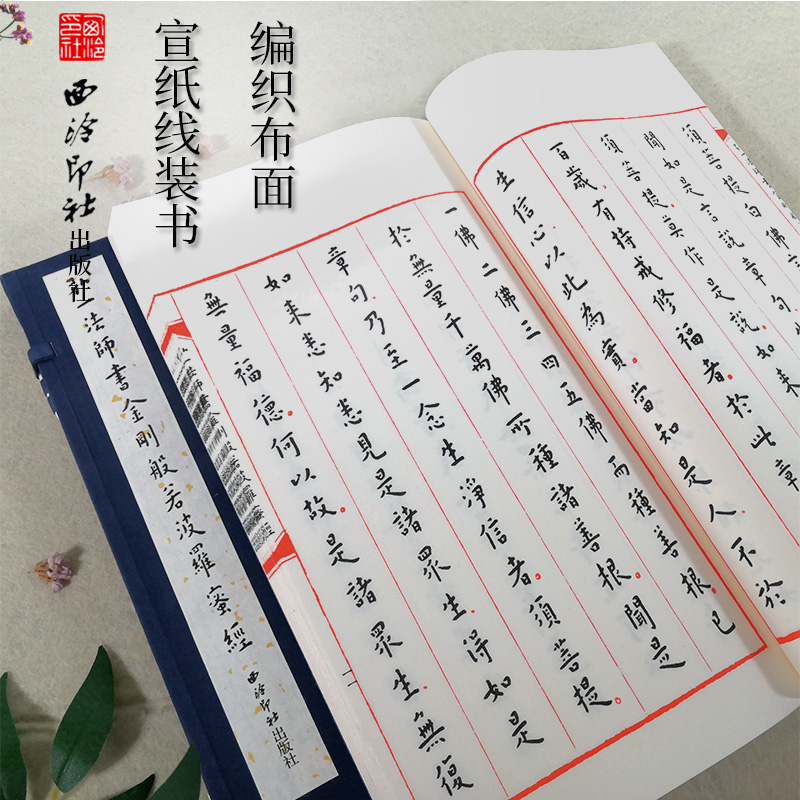 西泠印社
西泠印社出版社
编织布面
宣纸线装书
法師書金剛般若波羅蜜經
西泠印社出版社
須菩提白佛
聞如是言說章句
須菩提。莫作是說。如来
百歲。有持戒修福者。於此章
生信心以此為實。當知是人。不於
一佛二佛三四五佛而種善根。已
於無量千萬佛所種諸善根。聞是
章句。乃至一念生淨信者。須菩提。
如来悉知悉見是諸眾生。得如是
無量福德。何以故。是諸眾生。無復